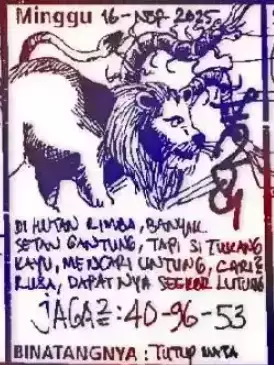 Minggu 16-NOP-2025
DI HUTAN RIMBA, BANYAK
SETAN GANTUNG, TAPI SI TUKANG
KAYU, MENCARI UNTUNG, CARI2
RUSA, DAPATNYA SEEKOR LUTUNG
JAGA2 : 40-96-53
BINATANGNYA : TUTUP MATA